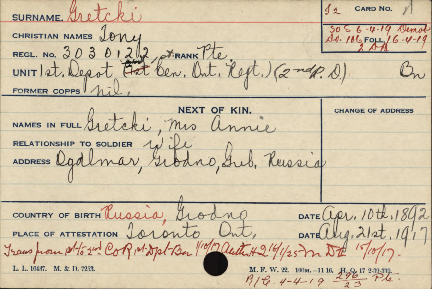 SURNAME. Gretcki
CARD NO.
CHRISTIAN NAMES Tony
SOS 6-4-19 Demob
DO. 106 FOLL. 16-4-19
2 DD
REGL. NO. 3030122 RANK Pte
UNIT 1st. Depot Bn. 1st Cen. Ont. Regt.) (2nd R. D) Bn
FORMER CORPS nil.
NEXT OF KIN.
CHANGE OF ADDRESS
NAMES IN FULL Gretcki, Mrs Annie
RELATIONSHIP TO SOLDIER Wife
ADDRESS Ogdlmar, Grodno, Gub. Russia
COUNTRY OF BIRTH Russia, Grodno DATE Apr. 10th. 1892
PLACE OF ATTESTATION Toronto Ont. DATE Aug. 21st. 1917
Trans from to 2nd C.O.R. 1st Dpt Bn 15/10/17.
L. L. 10407. M. & D. 7253. M. F. W. 22. 100m.-11-16. H. Q. 17
4-4-19 296/23 Pte.